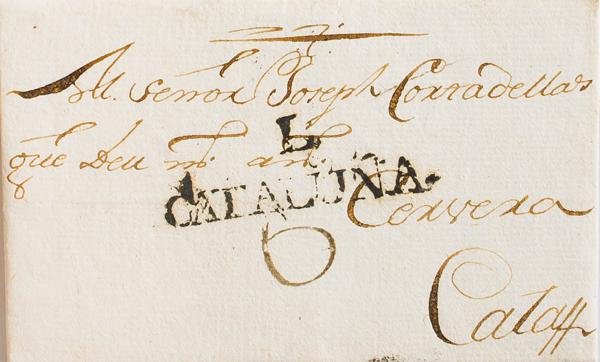 Al. señor Joseph Corradellas
que Deu m. an.
L.
CATALUÑA.
Cervera
6
Calaff